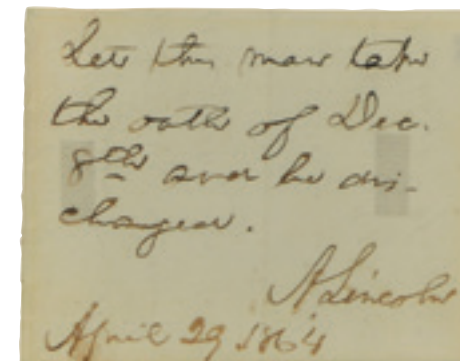 Let this man take
the oath of Dec.
8th and be dis-
charged.
A Lincoln
April 29, 1864